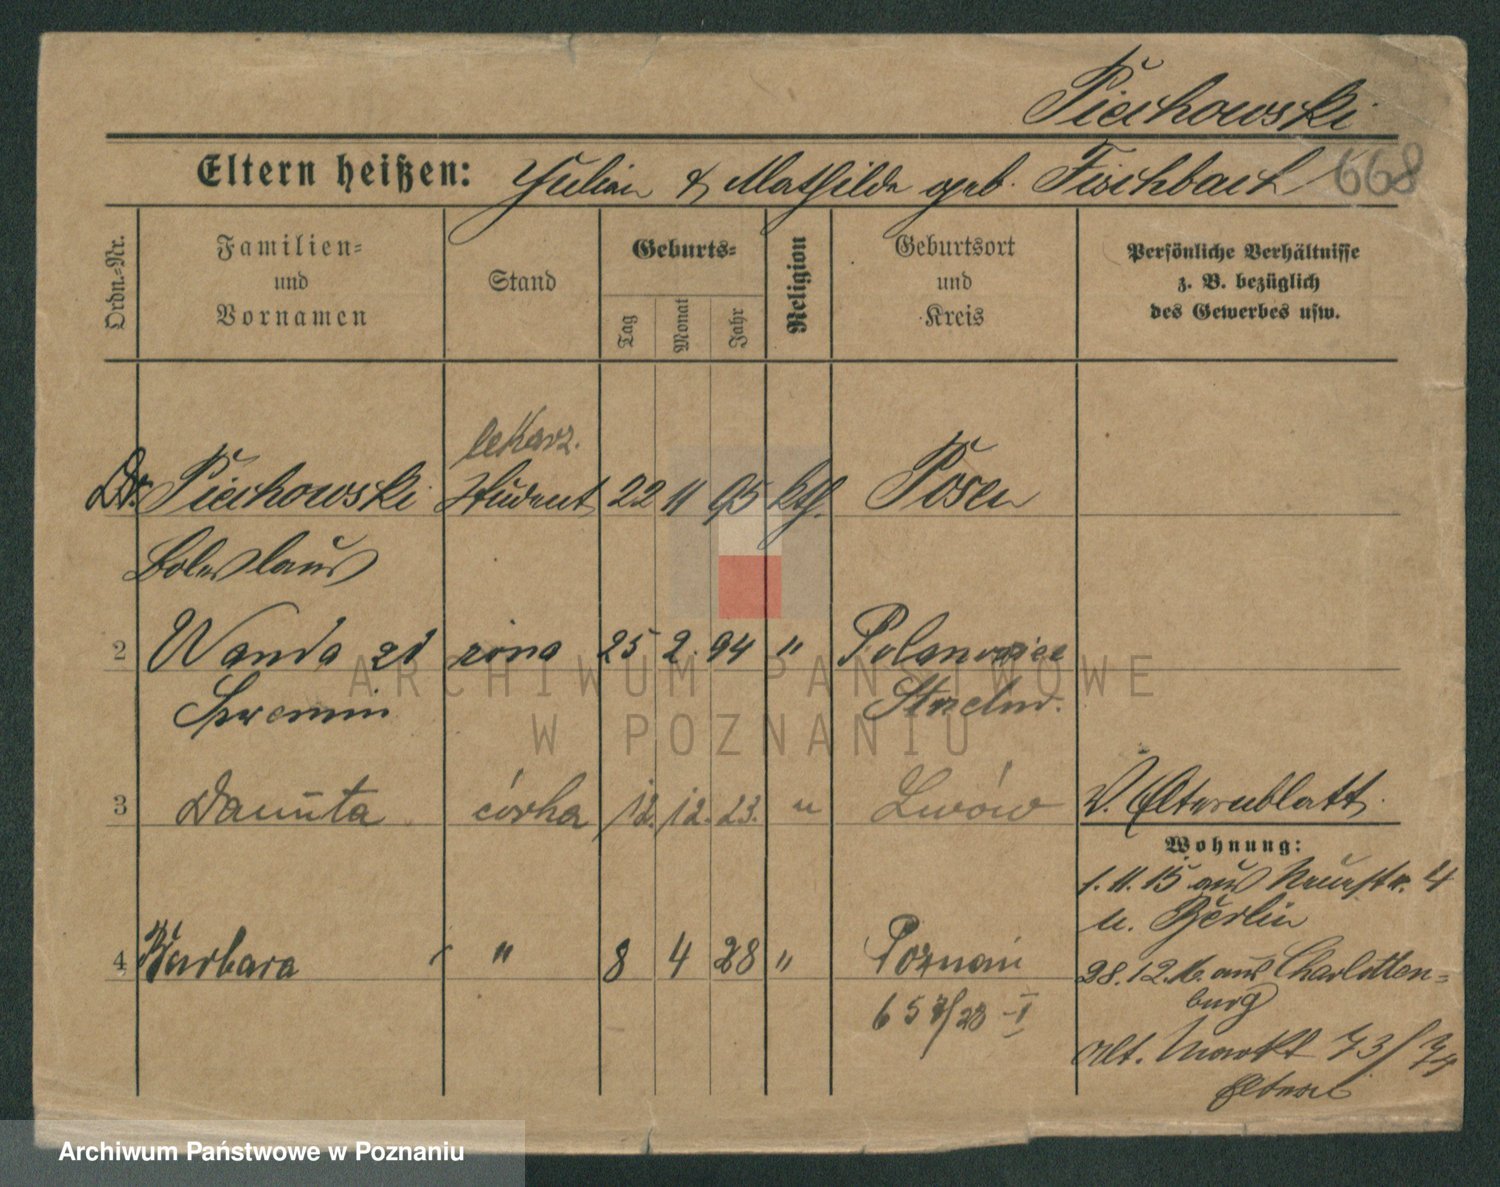 Piechowski
Eltern heißen: Julian & Mathilde geb. Fischbach 668
Ordn.-Nr.
Familien- und Vornamen
Stand
Geburts-
Tag
Monat
Jahr
Religion
Geburtsort und Kreis
Persönliche Verhältnisse z. B. bezüglich des Gewerbes usw.
lekarz.
Dr. Piechowski Student 22 11 95 kth. Posen
Boleslaus
2 Wanda zd żona 25 2. 94 "
Strzelno.
3 Danuta córka 12. 12. 23. " Lwów V. Elternblatt.
Wohnung:
1. 11. 15 aus Neuestr. 4
u. Berlin
4 Barbara " 8 4 28 " Poznań
28. 12. 16. aus Charlotten-
burg
/28 - I
Alt. Markt 73/74
Eltern
ARCHIWUM PAŃSTWOWE
W POZNANIU
Archiwum Państwowe w Poznaniu